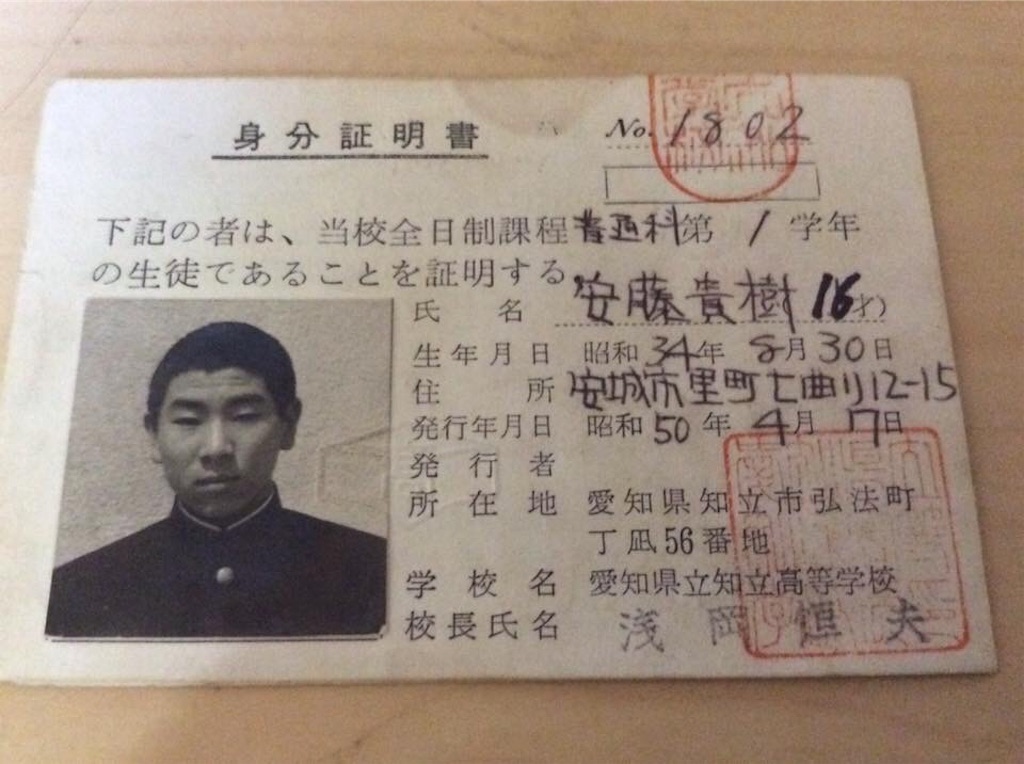 身分証明書
No. 1802
下記の者は、当校全日制課程普通科第1学年
の生徒であることを証明する
氏名 安藤貴樹 16才)
生年月日 昭和34年8月30日
住所 安城市里町七曲り12-15
発行年月日 昭和50年4月17日
発行者
所在地 愛知県知立市弘法町
丁凪56番地
学校名 愛知県立知立高等学校
校長氏名 浅岡恒夫